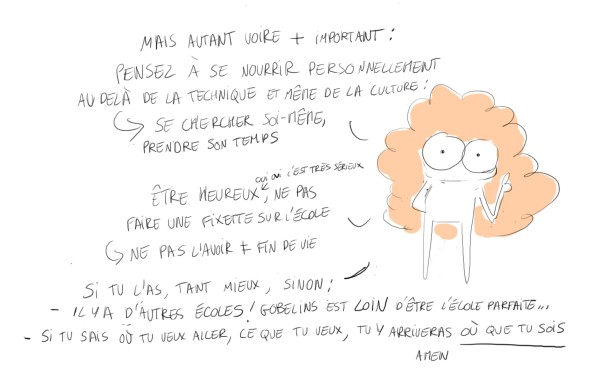 MAIS AUTANT VOIRE + IMPORTANT :
PENSEZ À SE NOURRIR PERSONNELLEMENT
AU DELÀ DE LA TECHNIQUE ET MÊME DE LA CULTURE :
SE CHERCHER SOI-MÊME,
PRENDRE SON TEMPS
oui oui c'EST TRÈS SÉRIEUX
ÊTRE HEUREUX, NE PAS
FAIRE UNE FIXETTE SUR L'ÉCOLE
NE PAS L'AVOIR ≠ FIN DE VIE
SI TU L'AS, TANT MIEUX, SINON :
- IL Y A D'AUTRES ÉCOLES ! GOBELINS EST LOIN D'ÊTRE L'ÉCOLE PARFAITE...
- SI TU SAIS OÙ TU VEUX ALLER, CE QUE TU VEUX, TU Y ARRIVERAS OÙ QUE TU SOIS
AMEN